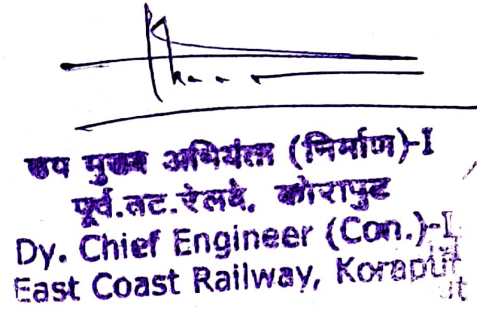 उप मुख्य अभियंता (निर्माण)-I
पूर्व.तट.रेलवे, कोरापुट
Dy. Chief Engineer (Con.)-I
East Coast Railway, Koraput